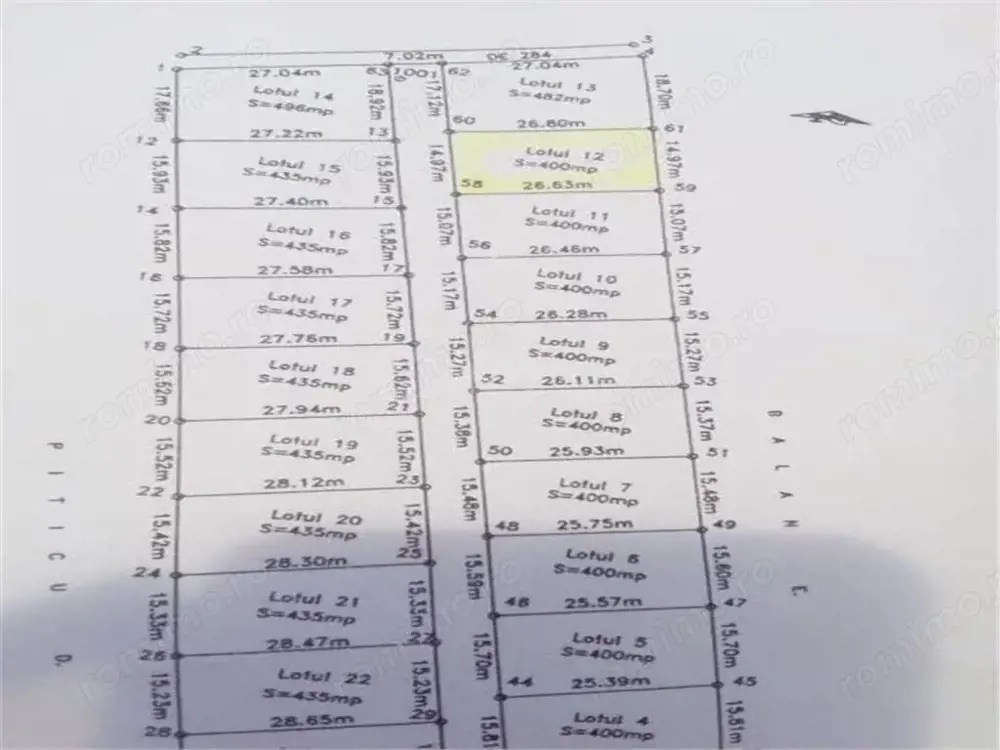 2
3
7.02m
DE 284
1
27.04m
63
1001
62
27.04m
4
17.66m
Lotul 14
S=496mp
18.92m
17.12m
Lotul 13
S=482mp
18.70m
12
27.22m
13
60
26.80m
61
15.93m
Lotul 15
S=435mp
15.93m
14.97m
Lotul 12
S=400mp
14.97m
14
27.40m
15
58
26.63m
59
15.82m
Lotul 16
S=435mp
15.82m
15.07m
Lotul 11
S=400mp
15.07m
16
27.58m
17
56
26.46m
57
15.72m
Lotul 17
S=435mp
15.72m
15.17m
Lotul 10
S=400mp
15.17m
18
27.76m
19
54
26.28m
55
15.62m
Lotul 18
S=435mp
15.62m
15.27m
Lotul 9
S=400mp
15.27m
20
27.94m
21
52
26.11m
53
15.52m
Lotul 19
S=435mp
15.52m
15.38m
Lotul 8
S=400mp
15.37m
22
28.12m
23
50
25.93m
51
15.42m
Lotul 20
S=435mp
15.42m
15.48m
Lotul 7
S=400mp
15.48m
24
28.30m
25
48
25.75m
49
15.33m
Lotul 21
S=435mp
15.33m
15.59m
Lotul 6
S=400mp
15.60m
26
28.47m
46
25.57m
47
15.23m
Lotul 22
S=435mp
15.23m
15.70m
Lotul 5
S=400mp
15.70m
28
28.65m
29
44
25.39m
45
15.81
Lotul 4
S=400mp
15.81m
PITICU D.
BALAN E.
romimo.ro
romimo.ro
romimo.ro
romimo.ro
romimo.ro
romimo.ro
romimo.ro
romimo.ro
romimo.ro